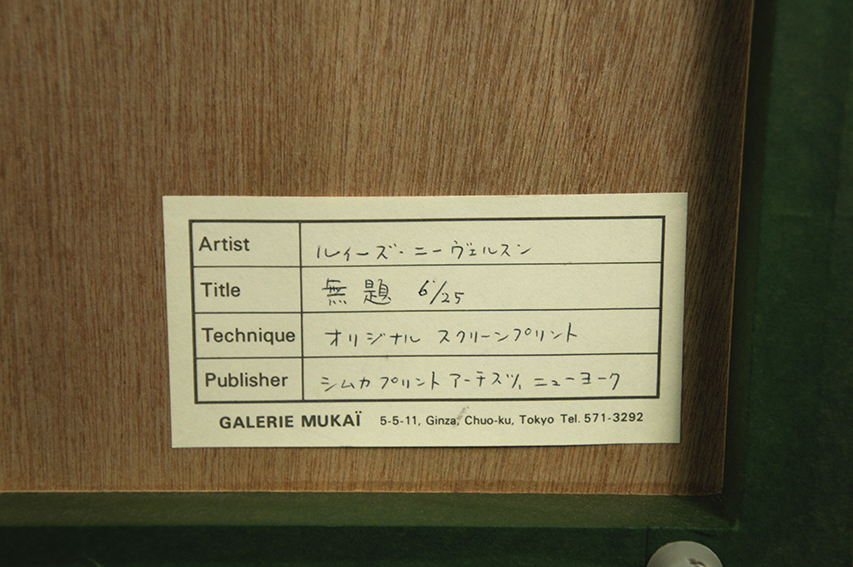 Artist ルイーズ・ニーヴェルスン
Title 無題 6/25
Technique オリジナル スクリーンプリント
Publisher シムカプリントアーチスツ, ニューヨーク
GALERIE MUKAÏ 5-5-11, Ginza, Chuo-ku, Tokyo Tel. 571-3292